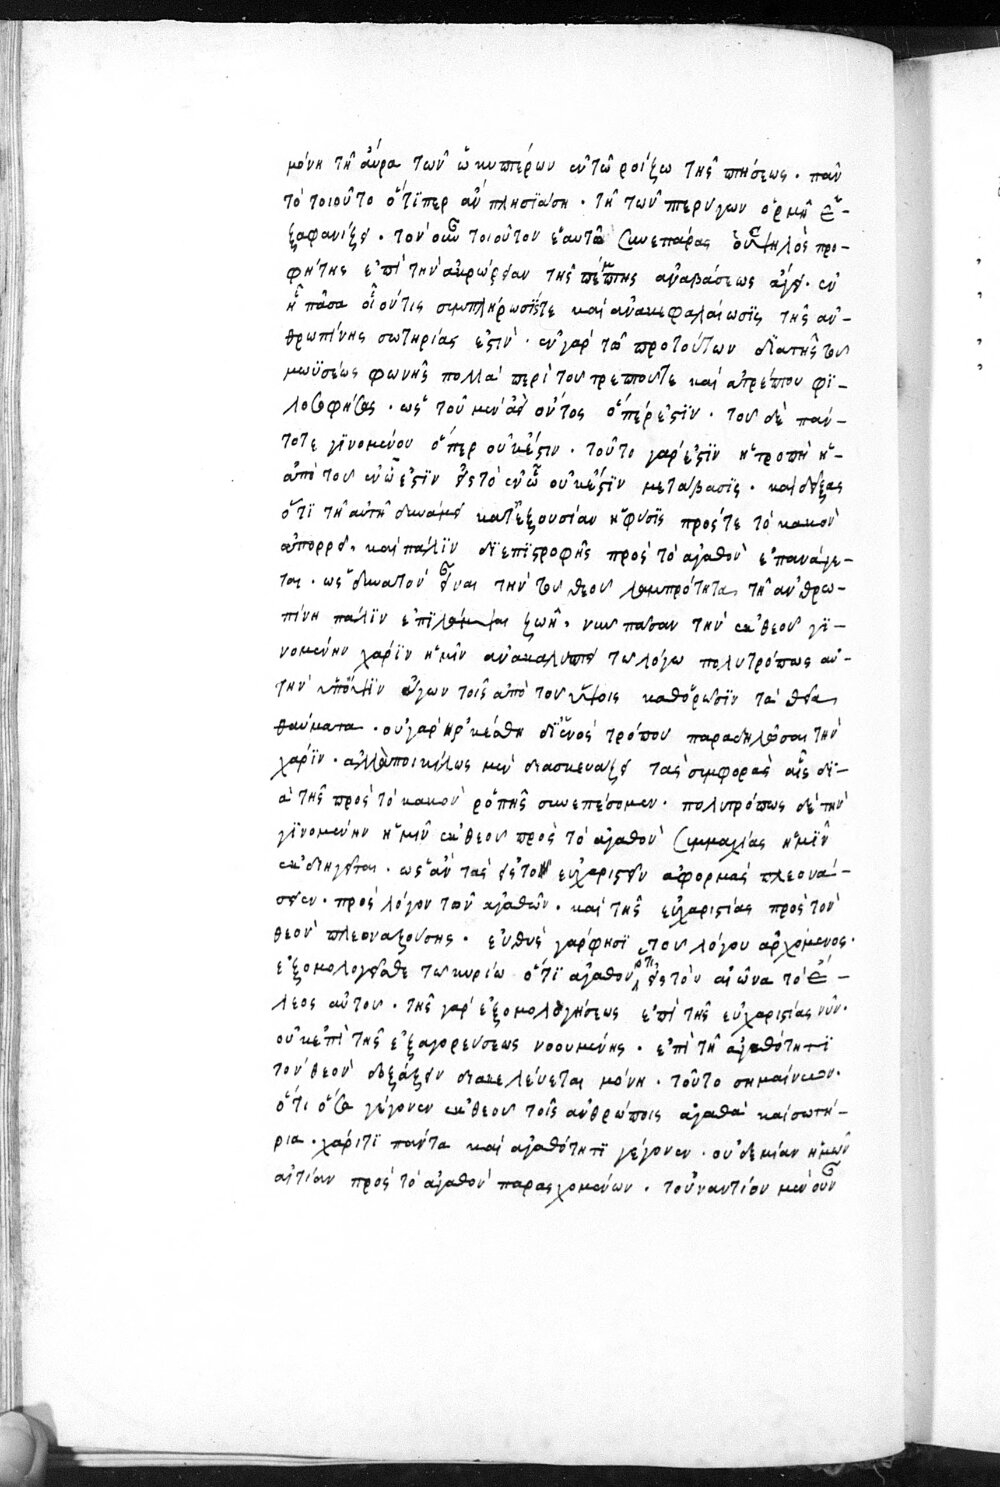 μόνη τῇ αὔρα τῶν ὠκυπτέρων ἐν τῶ ῥοίζω τῆς πτήσεως. πᾶν
τὸ τοιοῦτο ὅτιπερ ἂν πλησιάση. τῇ τῶν πτερύγων ὁρμῇ ἐ-
ξαφανίζει. τὸν οὖν τοιοῦτον ἑαυτῶ συνεπάρας ὁ ὑψηλὸς προ-
φήτης ἐπὶ τὴν ἀκρώρειαν τῆς πέμπτης ἀναβάσεως ἄγει. ἐν
ἧ πᾶσα οἷον τις συμπλήρωσίς τε καὶ ἀνακεφαλαίωσις τῆς ἀν-
θρωπίνης σωτηρίας ἐστὶν. ἐν γὰρ τῶ πρὸ τούτων διὰ τῆς τοῦ
μωϋσέως φωνῆς πολλὰ περὶ τοῦ τρεπτοῦ τε καὶ ἀτρέπτου φι-
λοσοφήσας. ὡς τοῦ μὲν ἀεὶ ὄντος ὅπέρ ἐστιν. τοῦ δὲ πάν-
τοτε γινομένου ὅπερ οὐκ ἔστιν. τοῦτο γάρ ἐστιν ἡ τροπὴ ἡ
ἀπὸ τοῦ ἐν ὧ ἐστὶν εἰς τὸ ἐν ὧ οὐκ ἔστιν μετάβασις. καὶ δείξας
ὅτι τῇ αὐτῇ δυνάμει κατ' ἐξουσίαν ἡ φύσις πρός τε τὸ κακὸν
ἀπορρεῖ, καὶ πάλιν δι' ἐπιστροφῆς πρὸς τὸ ἀγαθὸν ἐπανάγε-
ται. ὡς δυνατὸν εἶναι τὴν τοῦ θεοῦ λαμπρότητα, τῇ ἀνθρω-
πίνη πάλιν ἐπιλάμψαι ζωῇ, νῦν πᾶσαν τὴν ἐκ θεοῦ γι-
νομένην χάριν ἡμῖν ἀνακαλύπτει τῶ λόγω πολυτρόπως αὐ-
τὴν ὑπ' ὄψιν ἄγων τοῖς ἀπὸ τοῦ ὕψους καθορῶσιν τὰ θεῖα
θαύματα. οὐ γὰρ ἠρκέσθη δι' ἑνὸς τρόπου παραδηλῶσαι τὴν
χάριν. ἀλλὰ ποικίλως μὲν διασκευάζει τὰς συμφορὰς αἷς δι-
ὰ τῆς πρὸς τὸ κακὸν ῥοπῆς συνεπέσομεν. πολυτρόπως δὲ τὴν
γινομένην ἡμῖν ἐκ θεοῦ πρὸς τὸ ἀγαθὸν συμμαχίας ἡμῖν
ἐκδιηγεῖται. ὡς ἂν τὰς εἰς τὸ εὐχαριστεῖν ἀφορμὰς πλεονά-
σειεν. πρὸς λόγον τῶν ἀγαθῶν. καὶ τῆς εὐχαριστίας πρὸς τὸν
θεὸν πλεοναζούσης. εὐθὺς γάρ φησι τοῦ λόγου ἀρχόμενος.
ἐξομολογεῖσθε τῶ κυρίω ὅτι ἀγαθὸν ὅτι εἰς τὸν αἰῶνα τὸ ἔ-
λεος αὐτοῦ. τῆς γὰρ ἐξομολογήσεως ἐπὶ τῆς εὐχαριστίας νῦν.
οὐκ ἐπὶ τῆς ἐξαγορεύσεως νοουμένης. ἐπὶ τῇ ἀγαθότητι
τὸν θεὸν δοξάζειν διακελεύεται μόνη. τοῦτο σημαίνων.
ὅτι ὅσα γέγονεν ἐκ θεοῦ τοῖς ἀνθρώποις ἀγαθὰ καὶ σωτή-
ρια. χάριτι πάντα καὶ ἀγαθότητι γέγονεν. οὐδεμίαν ἡμῶν
αἰτίαν πρὸς τὸ ἀγαθὸν παρασχομένων. τοὐναντίον μὲν οὖν